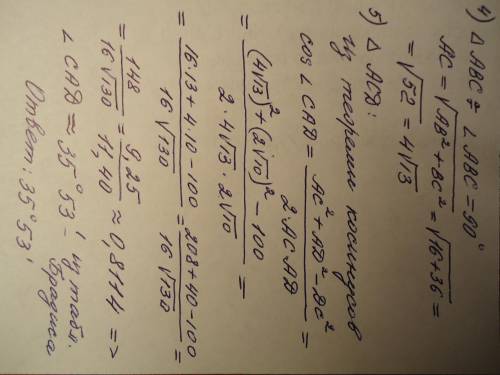 4) Δ ABC: ∠ ABC = 90°
AC = √(AB² + BC²) = √(16+36) =
= √52 = 4√13
5) Δ ACD:
из теоремы косинусов
cos ∠ CAD = (AC² + AD² - DC²) / (2·AC·AD) =
= ((4√13)² + (2√10)² - 100) / (2·4√13·2√10) =
= (16·13 + 4·10 - 100) / (16√130) = (208 + 40 - 100) / (16√130) =
= 148 / (16√130) = 9,25 / 11,40 ≈ 0,8114 =>
∠ CAD ≈ 35°53' - из табл. Брадиса
Ответ: 35°53'